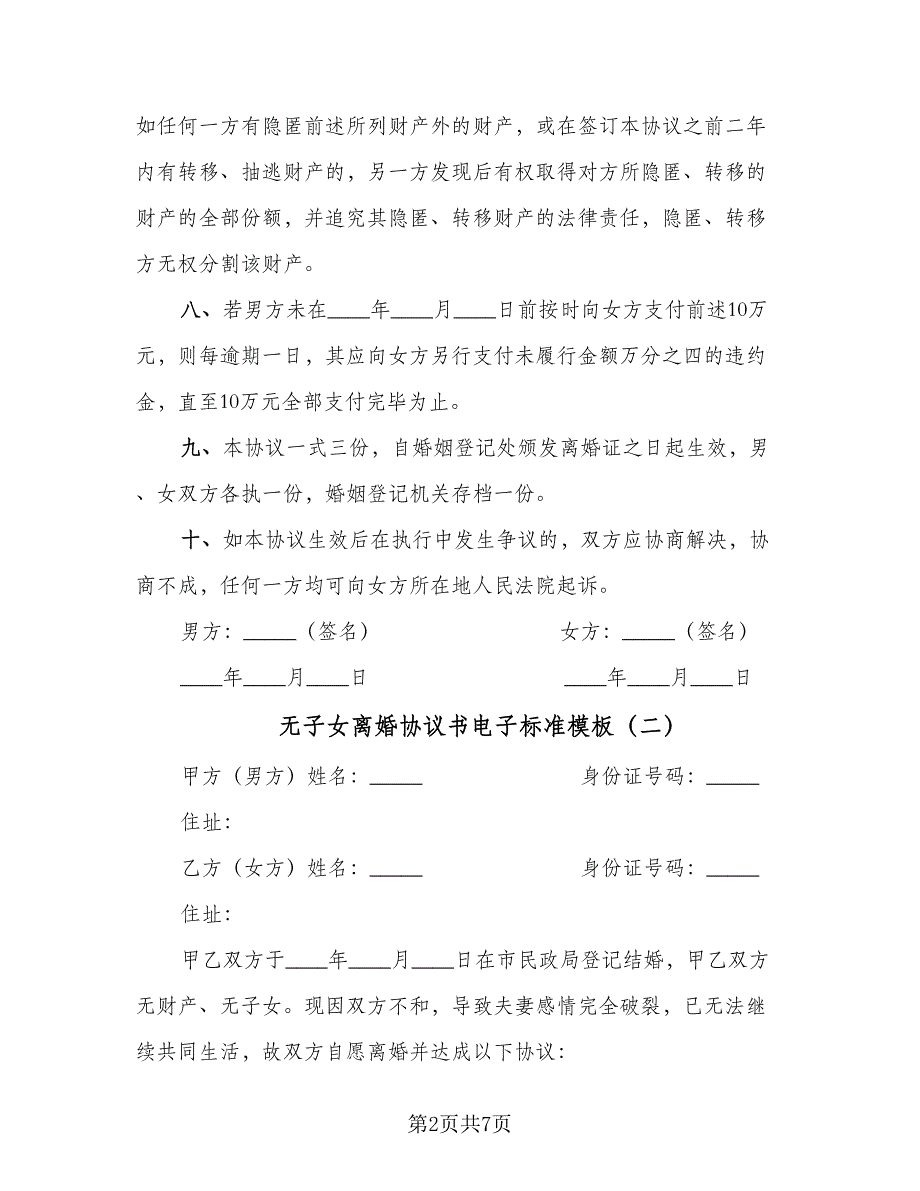 如任何一方有隐匿前述所列财产外的财产，或在签订本协议之前二年
内有转移、抽逃财产的，另一方发现后有权取得对方所隐匿、转移的
财产的全部份额，并追究其隐匿、转移财产的法律责任，隐匿、转移
方无权分割该财产。
八、若男方未在____年____月____日前按时向女方支付前述10万
元，则每逾期一日，其应向女方另行支付未履行金额万分之四的违约
金，直至10万元全部支付完毕为止。
九、本协议一式三份，自婚姻登记处颁发离婚证之日起生效，男
、女双方各执一份，婚姻登记机关存档一份。
十、如本协议生效后在执行中发生争议的，双方应协商解决，协
商不成，任何一方均可向女方所在地人民法院起诉。
男方：_____（签名） 女方：_____（签名）
____年____月____日 ____年____月____日
无子女离婚协议书电子标准模板（二）
甲方（男方）姓名：_____ 身份证号码：_____
住址：
乙方（女方）姓名：_____ 身份证号码：_____
住址：
甲乙双方于____年____月____日在市民政局登记结婚，甲乙双方
无财产、无子女。现因双方不和，导致夫妻感情完全破裂，已无法继
续共同生活，故双方自愿离婚并达成以下协议：
第2页共7页